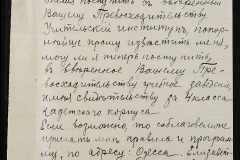 поступить въ завѣренный
Вашему Превосходительству
Учительскій институтъ, покор-
нѣйше прошу извѣстить меня,
могу ли я теперь поступить
въ ввѣренное Вашему Пре-
восходительству учебное заведеніе,
имѣя свидѣтельство за 4 класса
Кадетскаго корпуса.
Если возможно, то соблаговолите
прислать мнѣ правила и програм-
му, по адресу: Одесса